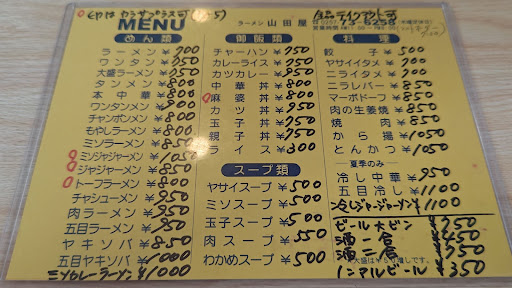 MENU
ラーメン 山田屋
73-6258
めん類
ラーメン ¥700
ワンタン ¥750
大盛ラーメン ¥850
タンメン ¥800
本中華 ¥800
ワンタンメン ¥900
チャンポンメン ¥800
もやしラーメン ¥850
ミソラーメン ¥850
ミソジャジャーメン ¥1050
ジャジャーメン ¥850
トーフラーメン ¥800
チャシューメン ¥950
肉ラーメン ¥950
五目ラーメン ¥950
ヤキソバ ¥850
五目ヤキソバ ¥1000
ミソカレーラーメン ¥1000
御飯類
チャーハン ¥750
カレーライス ¥750
カツカレー ¥950
中華丼 ¥800
麻婆丼 ¥800
カツ丼 ¥950
玉子丼 ¥750
親子丼 ¥750
ライス ¥300
スープ類
ヤサイスープ ¥500
ミソスープ ¥500
玉子スープ ¥500
肉スープ ¥550
わかめスープ ¥500
料理
餃子 ¥500
ヤサイイタメ ¥700
ニライタメ ¥700
ニラレバー ¥850
マーボドーフ ¥850
肉の生姜焼 ¥850
焼肉 ¥850
から揚 ¥1050
とんかつ ¥1050
―夏季のみ―
冷し中華 ¥950
五目冷し ¥1100
冷しジャージャーメン ¥1100
ビール大ビン ¥750
酒一合 ¥450
酒二合 ¥750
ノンアルビール ¥350